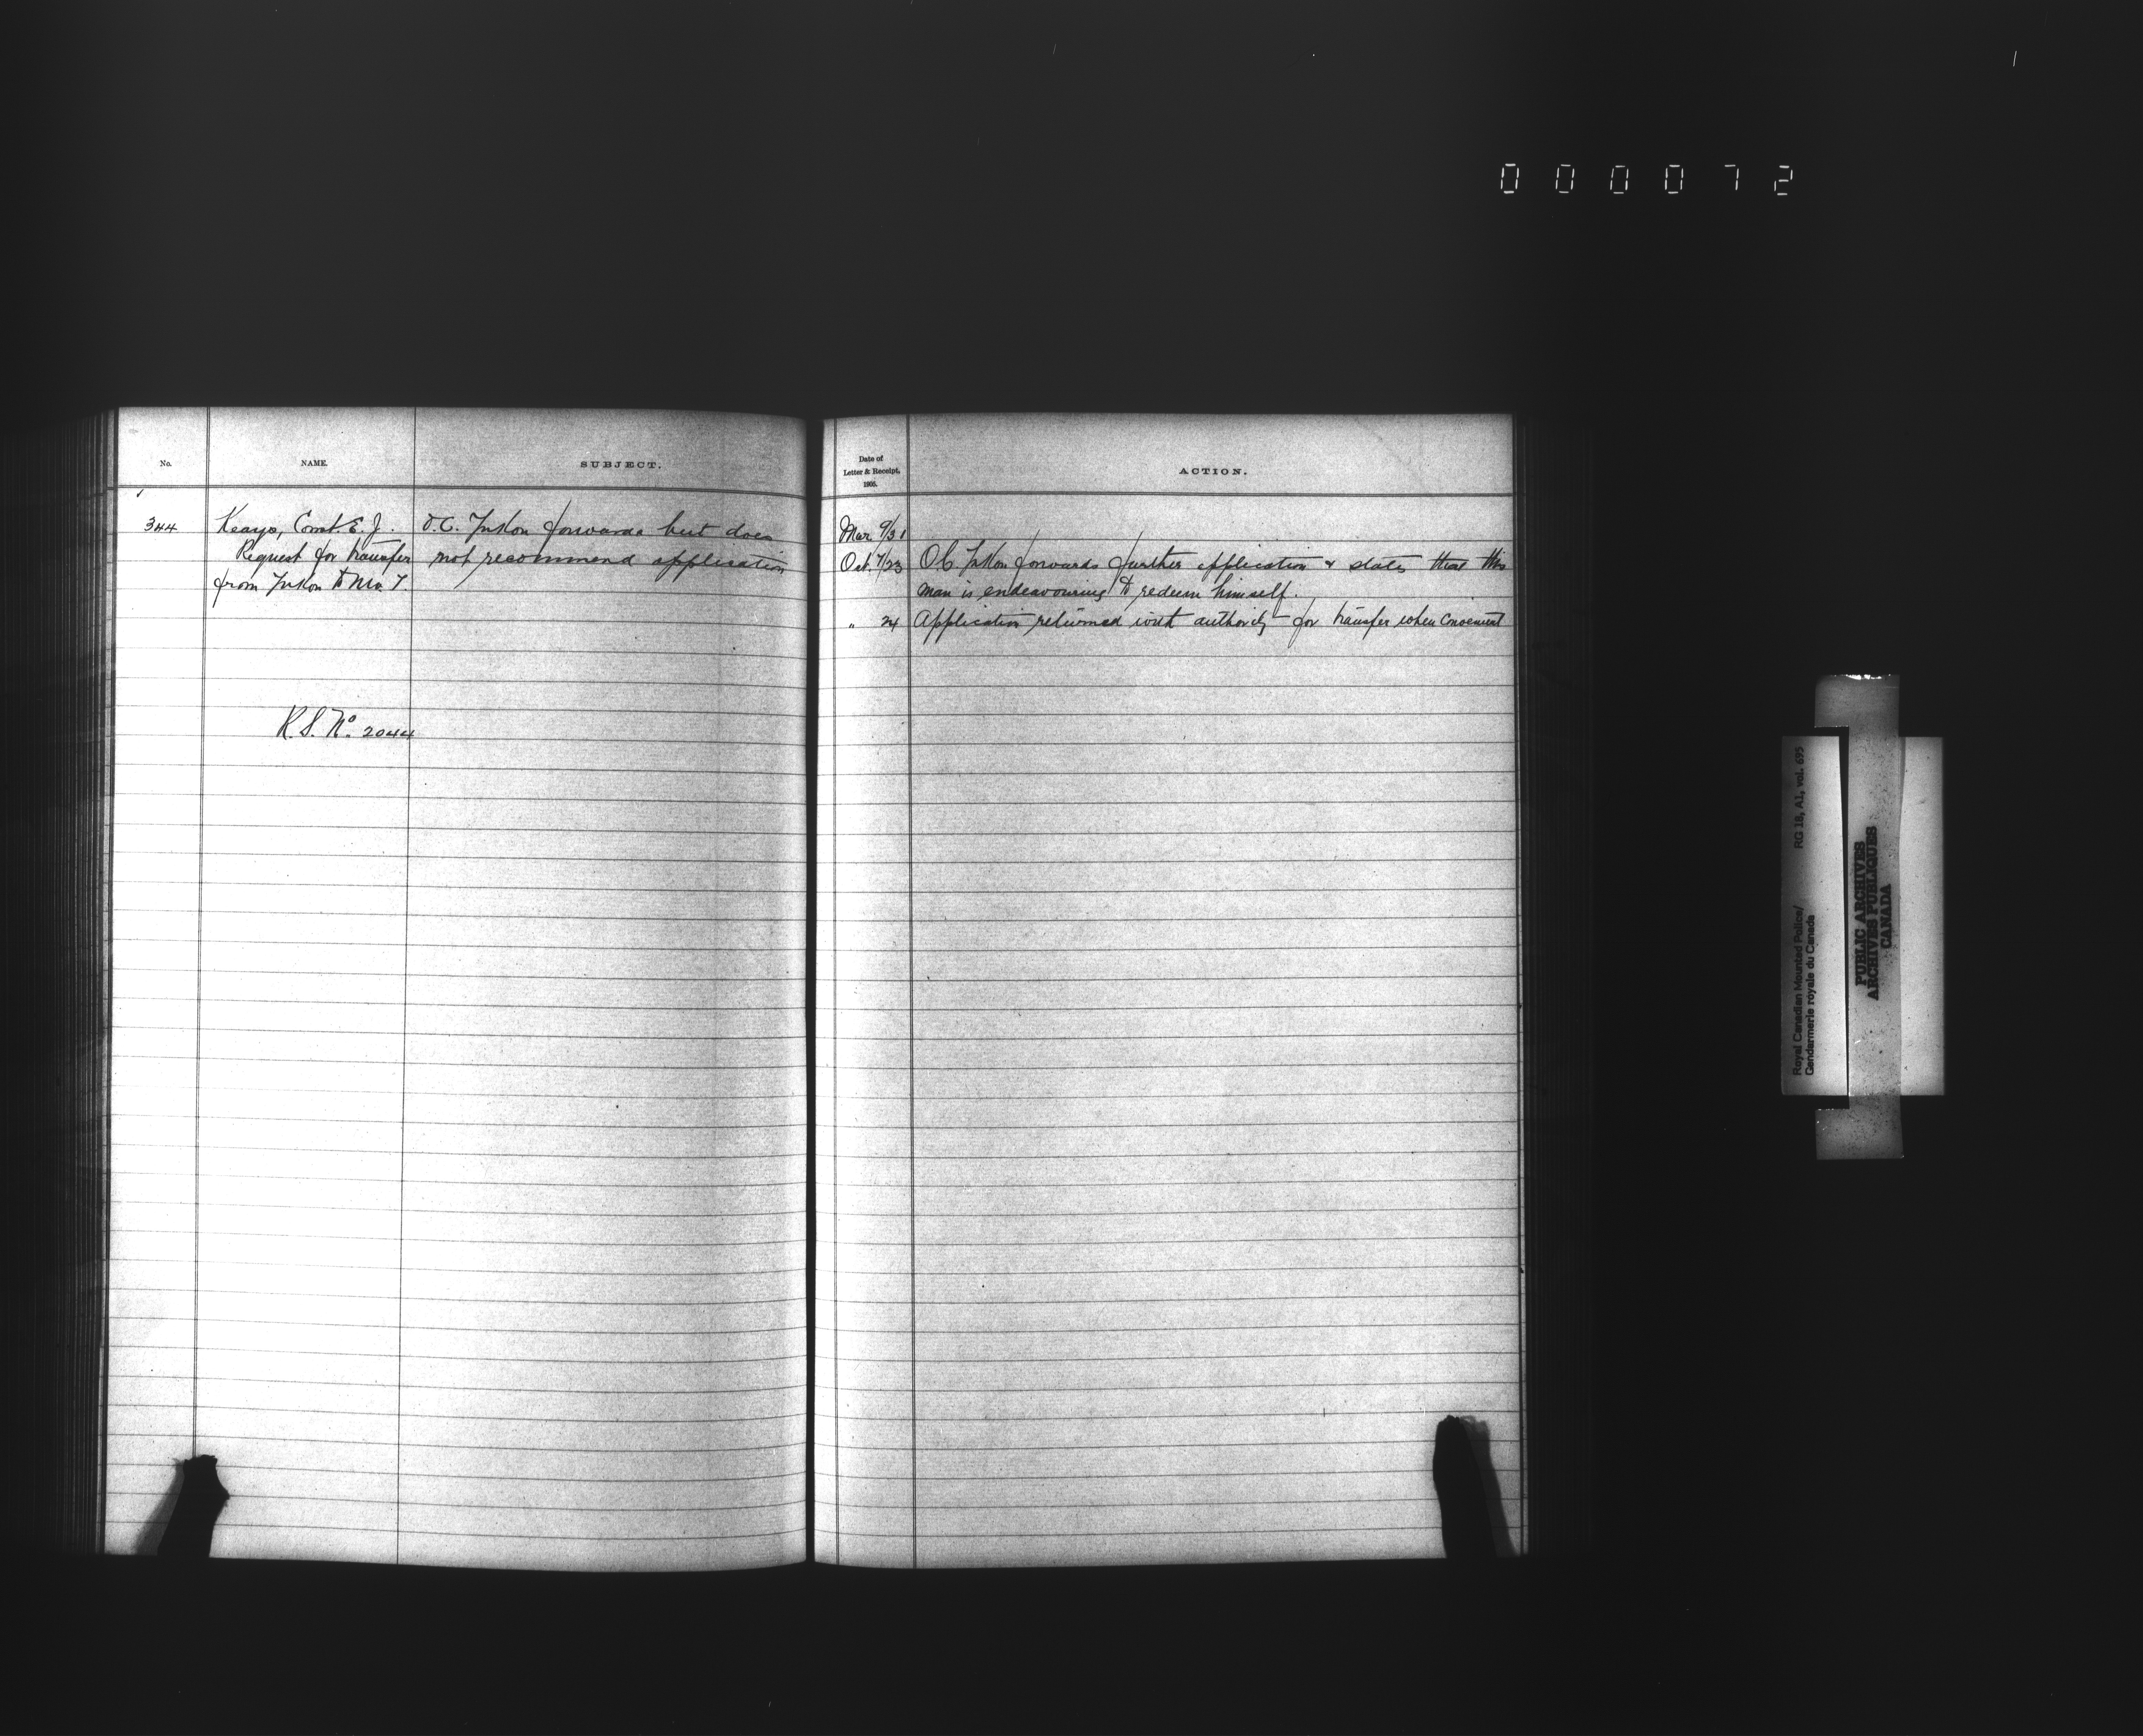 000072
No.
NAME.
SUBJECT.
344
Keays, Const. E. J.
Request for transfer
from Yukon to N.W.T.
O.C. Yukon forwards but does
not recommend application
R.S. No. 2044
Date of
Letter & Receipt.
1905.
ACTION.
Mar. 9/31
Oct. 7/23 OC Yukon forwards further application & states that this
man is endeavouring to redeem himself.
" 24 Application returned with authority for transfer when convenient
Royal Canadian Mounted Police/ RG 18, A1, vol. 695
Gendarmerie royale du Canada
PUBLIC ARCHIVES
ARCHIVES PUBLIQUES
CANADA